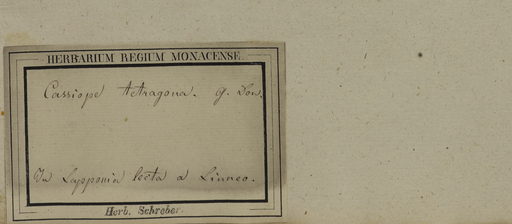 HERBARIUM REGIUM MONACENSE.
Cassiope tetragona. G. Don.
In Lapponia lecta a Linneo.
Herb. Schreber.